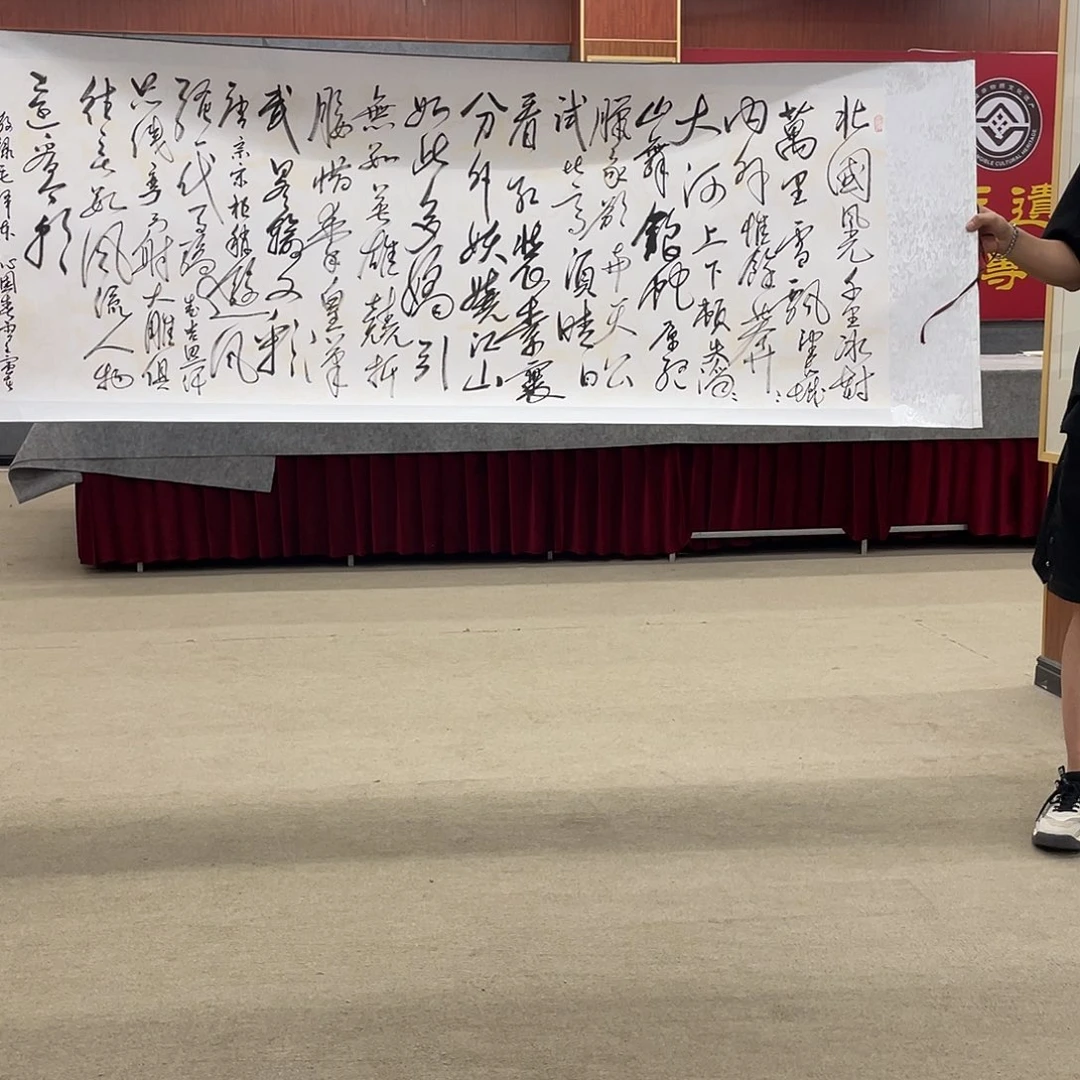 北國風光千里冰封
萬里雪飄望長城
内外惟餘莽:
大河上下頓失滔:
山舞銀蛇原馳
臘象欲與天公
試比高須晴日
看紅裝素裹
分外妖嬈江山
如此多嬌引
無數英雄競折
腰惜秦皇漢
武略輸文采
唐宗宋祖稍遜風
騷一代天驕成吉思汗
只識彎弓射大雕俱
往矣數風流人物
還看今朝
毛澤東沁園春雪
遺
CULTURAL HERITAGE